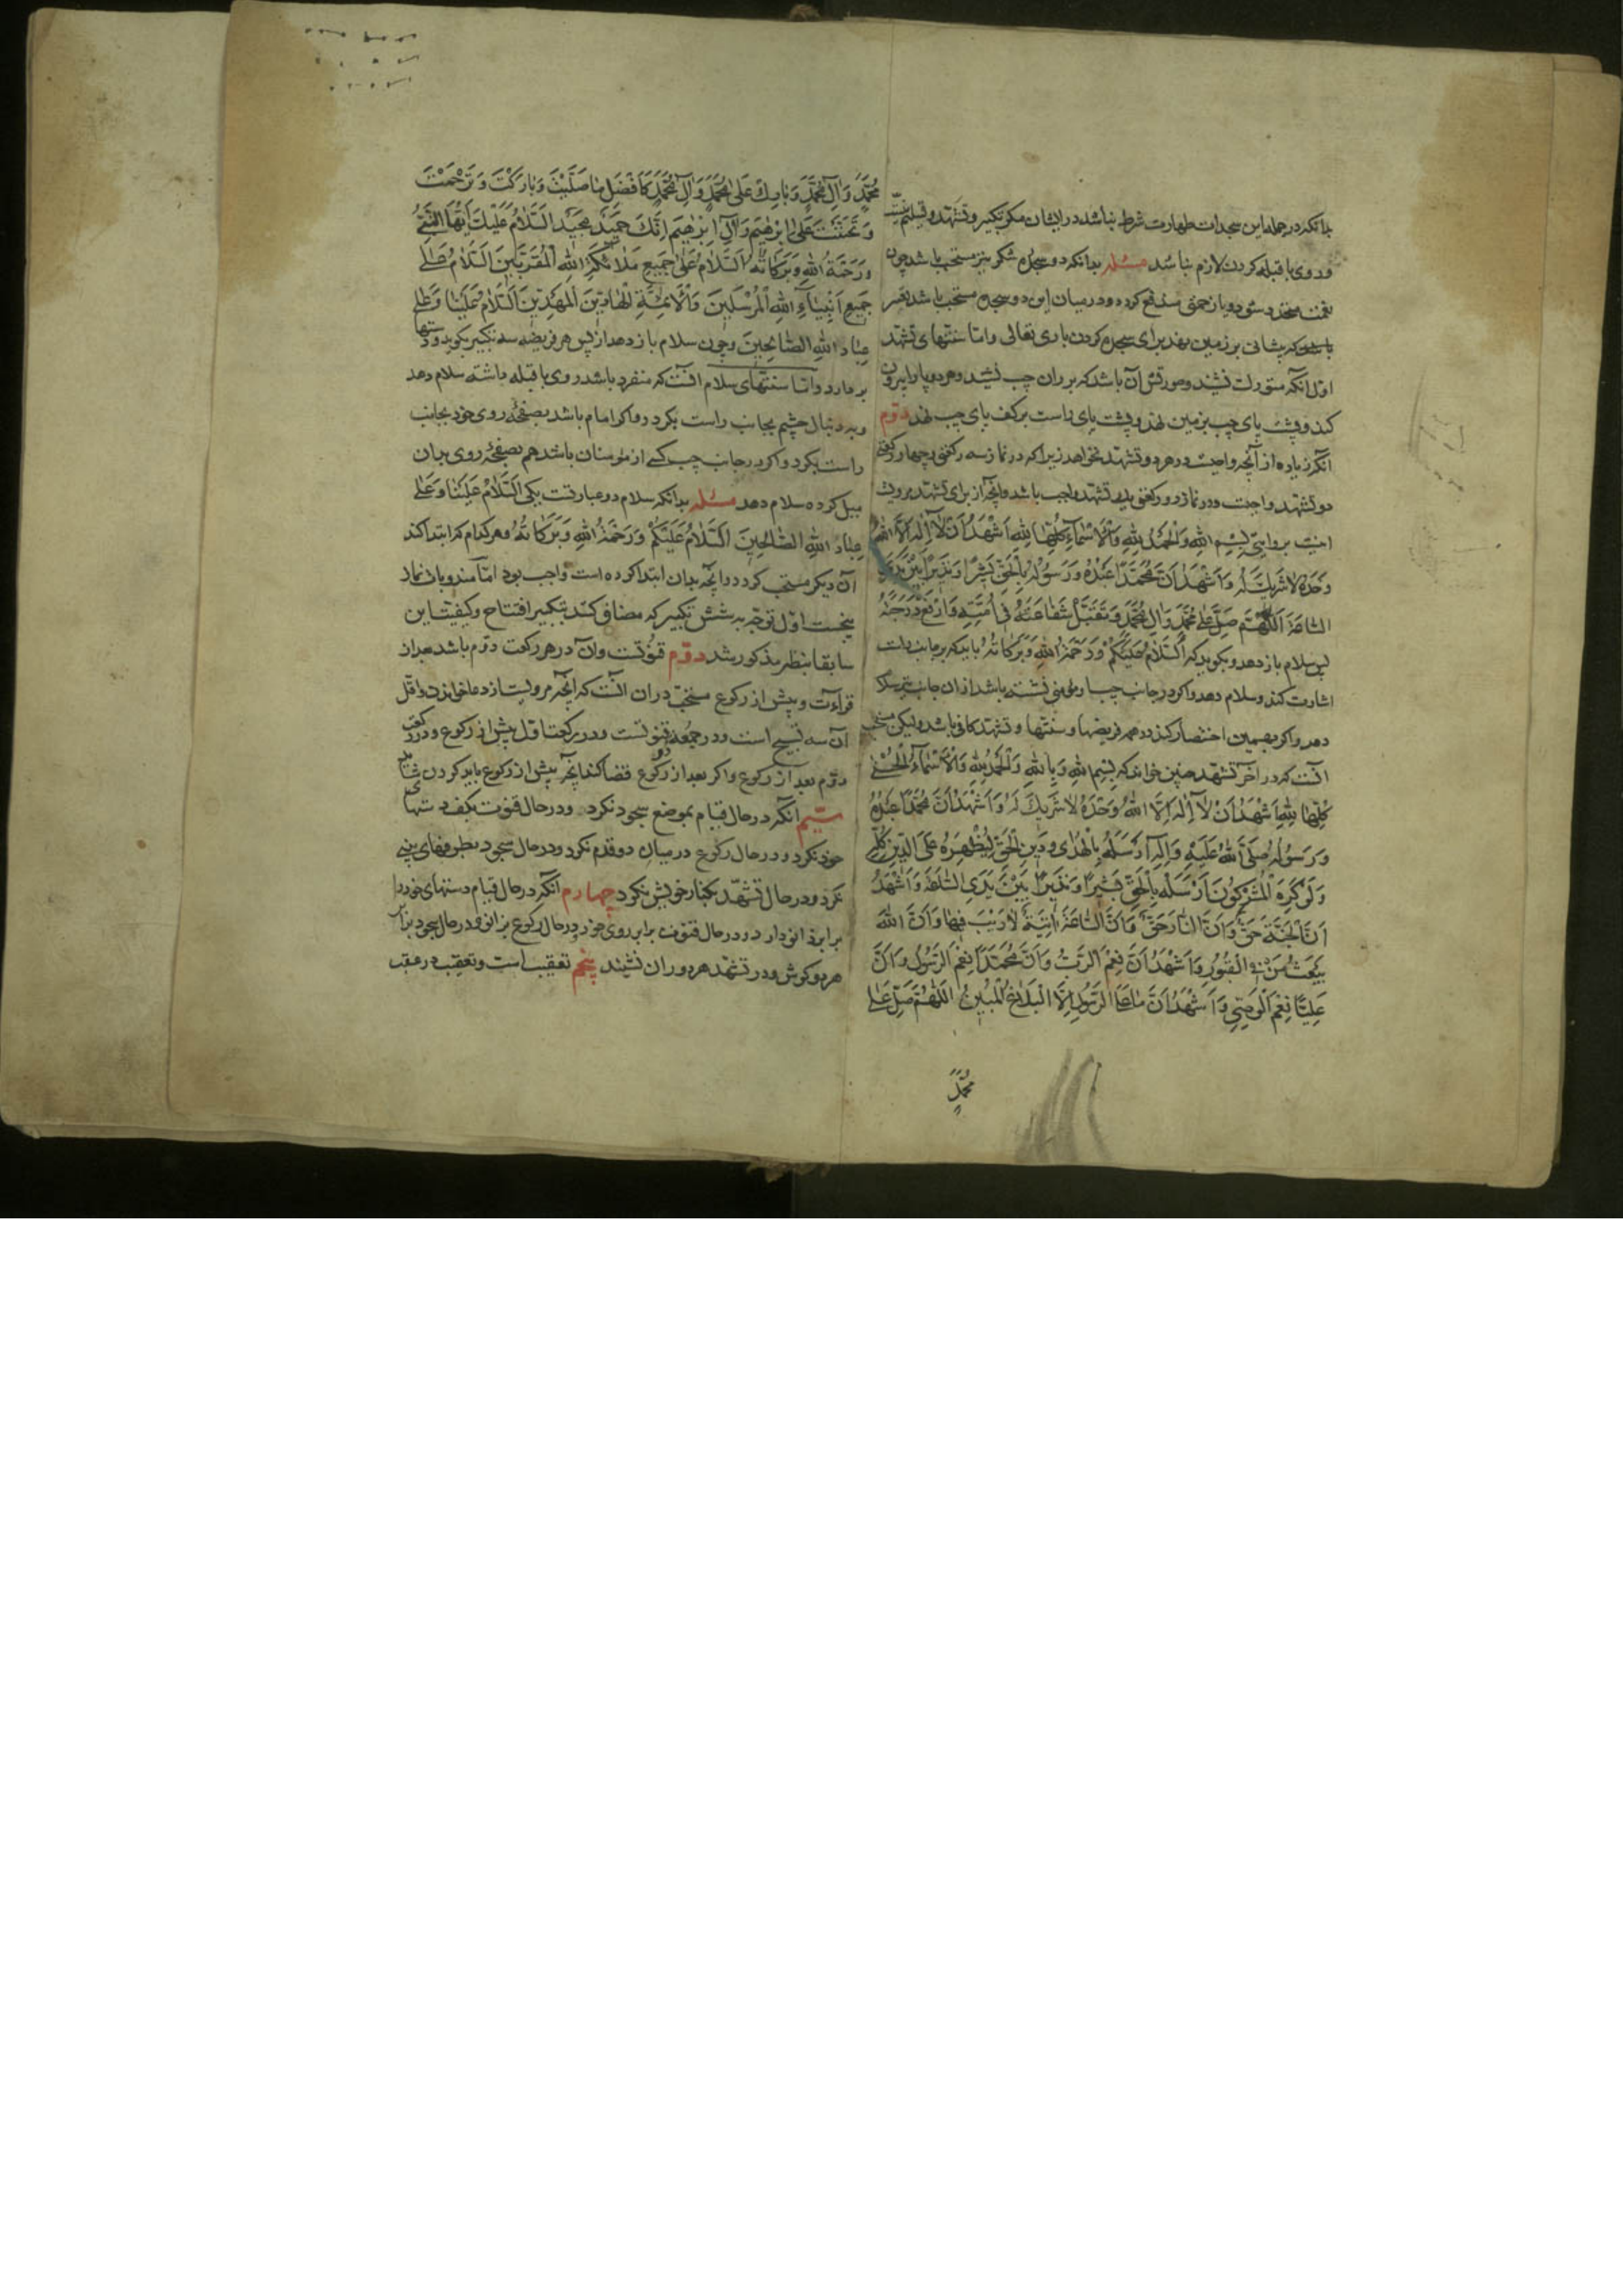 بدانکه در جمله این سجدات طهارت شرط نباشد در ایشان مکر تکبیر و تشهد و تسلیم نیست
و روی با قبله کردن لازم نباشد مسئله بدانکه دو سجده شکر نیز مستحب باشد چون
نعمت متجدد شود و یا زحمتی مندفع کردد و در میان این دو سجده مستحب باشد تعفیر
باشد که پیشانی بر زمین نهد برای سجده کردن باری تعالی و اما سنتهای تشهد
اول آنکه متورک نشیند و صورتش آن باشد که بر ران چپ نشیند و هر دو پا را بیرون
کند و پشت پای چپ بزمین نهد و پشت پای راست بر کف پای چپ نهد دوّم
آنکه زیاده از آنچه واجبست در هر دو تشهد بخواهد زیرا که در نماز سه رکعتی و چهار رکعتی
دو تشهد واجبست و در نماز دو رکعتی یک تشهد واجب باشد و آنچه از برای تشهد مرویست
اینست بروایتی بِسْمِ اللهِ وَالْحَمْدُ لِلّهِ وَالْاَسْمَآءُ کُلُّهَا لِلّهِ اَشْهَدُ اَنْ لَآ اِلٰهَ اِلَّا اللهُ
وَحْدَهُ لَا شَرِیكَ لَهُ وَاَشْهَدُ اَنَّ مُحَمَّدًا عَبْدُهُ وَرَسُولُهُ بِالْحَقِّ بَشِیرًا وَنَذِیرًا بَیْنَ یَدَیِ
السَّاعَةِ اَللّٰهُمَّ صَلِّ عَلٰی مُحَمَّدٍ وَآلِ مُحَمَّدٍ وَتَقَبَّلْ شَفَاعَتَهُ فِی اُمَّتِهِ وَارْفَعْ دَرَجَتَهُ
پس سلام باز دهد و بکوید که اَلسَّلَامُ عَلَیْکُمْ وَرَحْمَةُ اللهِ وَبَرَکَاتُهُ باید که بر جانب راست
اشارت کند و سلام دهد و اکر در جانب چپ او مؤمنی نشسته باشد از ان جانب نیز سلام
دهد و اکر بهمین اختصار کند در همه فریضها و سنتها و تشهد کافی باشد ولیکن مستحب
آنست که در آخر تشهد چنین خواند که بِسْمِ اللهِ وَبِاللهِ وَالْحَمْدُ لِلّهِ وَالْاَسْمَآءُ الْحُسْنٰی
کُلُّهَا لِلّهِ اَشْهَدُ اَنْ لَآ اِلٰهَ اِلَّا اللهُ وَحْدَهُ لَا شَرِیكَ لَهُ وَاَشْهَدُ اَنَّ مُحَمَّدًا عَبْدُهُ
وَرَسُولُهُ صَلَّی اللهُ عَلَیْهِ وَآلِهِ اَرْسَلَهُ بِالْهُدٰی وَدِینِ الْحَقِّ لِیُظْهِرَهُ عَلَی الدِّینِ کُلِّهِ
وَلَوْ کَرِهَ الْمُشْرِکُونَ اَرْسَلَهُ بِالْحَقِّ بَشِیرًا وَنَذِیرًا بَیْنَ یَدَیِ السَّاعَةِ وَاَشْهَدُ
اَنَّ الْجَنَّةَ حَقٌّ وَاَنَّ النَّارَ حَقٌّ وَاَنَّ السَّاعَةَ اٰتِیَةٌ لَا رَیْبَ فِیهَا وَاَنَّ اللهَ
یَبْعَثُ مَنْ فِی الْقُبُورِ وَاَشْهَدُ اَنَّ نِعْمَ الرَّبُّ وَاَنَّ مُحَمَّدًا نِعْمَ الرَّسُولُ وَاَنَّ
عَلِیًّا نِعْمَ الْوَصِیُّ وَاَشْهَدُ اَنَّ مَا عَلَی الرَّسُولِ اِلَّا الْبَلَاغُ الْمُبِینُ اَللّٰهُمَّ صَلِّ عَلٰی
مُحَمَّدٍ
مُحَمَّدٍ وَآلِ مُحَمَّدٍ وَبَارِكْ عَلٰی مُحَمَّدٍ وَآلِ مُحَمَّدٍ کَاَفْضَلِ مَا صَلَّیْتَ وَبَارَکْتَ وَتَرَحَّمْتَ
وَتَحَنَّنْتَ عَلٰی اِبْرٰهِیمَ وَآلِ اِبْرٰهِیمَ اِنَّكَ حَمِیدٌ مَجِیدٌ اَلسَّلَامُ عَلَیْكَ اَیُّهَا النَّبِیُّ
وَرَحْمَةُ اللهِ وَبَرَکَاتُهُ اَلسَّلَامُ عَلٰی جَمِیعِ مَلَائِکَةِ اللهِ الْمُقَرَّبِینَ اَلسَّلَامُ عَلٰی
جَمِیعِ اَنْبِیَآءِ اللهِ الْمُرْسَلِینَ وَالْاَئِمَّةِ الْهَادِینَ الْمَهْدِیِّینَ اَلسَّلَامُ عَلَیْنَا وَعَلٰی
عِبَادِ اللهِ الصَّالِحِینَ وچون سلام باز دهد از پس هر فریضه سه تکبیر بکوید و دستها
بر دارد و اما سنتهای سلام آنست که منفرد باشد روی با قبله داشته سلام دهد
و به دنبال چشم بجانب راست بکردد و اکر امام باشد بصفحه روی خود بجانب
راست بکردد و اکر در جانب چپ کسی از مؤمنان باشد هم بصفحه روی بدان
میل کرده سلام دهد مسئله بدانکه سلام دو عبارتست یکی اَلسَّلَامُ عَلَیْنَا وَعَلٰی
عِبَادِ اللهِ الصَّالِحِینَ اَلسَّلَامُ عَلَیْکُمْ وَرَحْمَةُ اللهِ وَبَرَکَاتُهُ و هر کدام که ابتدا کند
آن دیکر مستحب کردد و آنچه بدان ابتدا کرده است واجب بود امّا مندوبات نماز
پنجست اوّل توجّه به شش تکبیر که مضاف کند بتکبیر افتتاح و کیفیّت این
سابقا بنظر مذکور شد دوّم قنوتست و آن در هر رکعت دوّم باشد بعد از
قرآءت و پیش از رکوع مستحبّ در ان آنست که آنچه مرویست از دعا خواند و اقل
آن سه تسبیح است و در جمعه دو قنوتست و در رکعت اول پیش از رکوع و در رکعت
دوّم بعد از رکوع و اکر بعد از رکوع قضا کند آنچه پیش از رکوع باید کردن شاید
سیّم آنکه در حال قیام بموضع سجود نکرد و در حال قنوت بکف دستهای
خود نکرد و در حال رکوع در میان دو قدم نکرد و در حال سجود بطرفهای بینی
نکرد و در حال تشهّد بکنار خویش نکرد چهارم آنکه در حال قیام دستهای خود را
برابر زانو دارد و در حال قنوت برابر روی خود و در حال رکوع بر زانو و در حال سجود برابر
هر دو کوش و در تشهّد هر دو ران نشیند پنجم تعقیب است و تعقیب در عقب